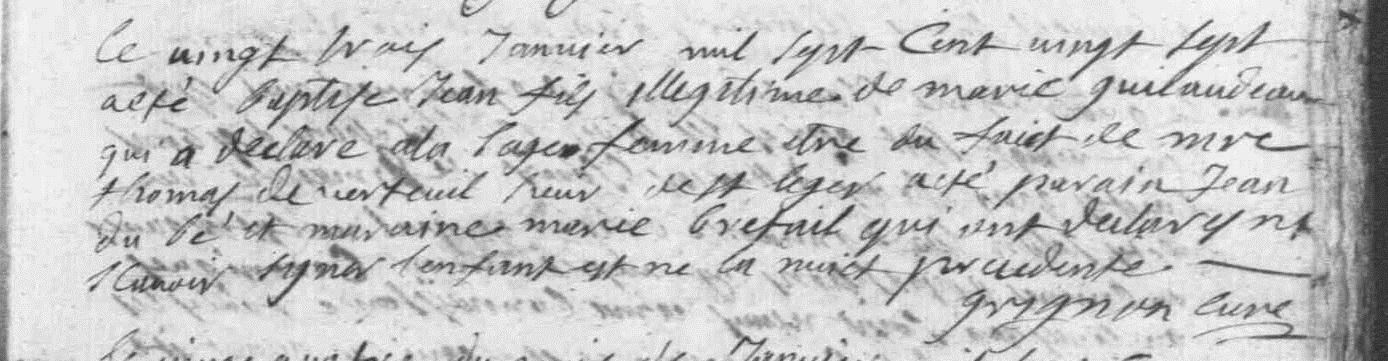 le vingt trois Janvier mil sept Cent vingt sept
a esté baptise Jean fils illegitime de marie guilaudeau
qui a declaré a la sage femme etre du faict de mre
thomas de verteuil sieur de st leger a esté parain Jean
du bé et maraine marie brefail qui ont declaré nt
scavoir syner l'enfant est ne la nuict precedente
grygnon curé